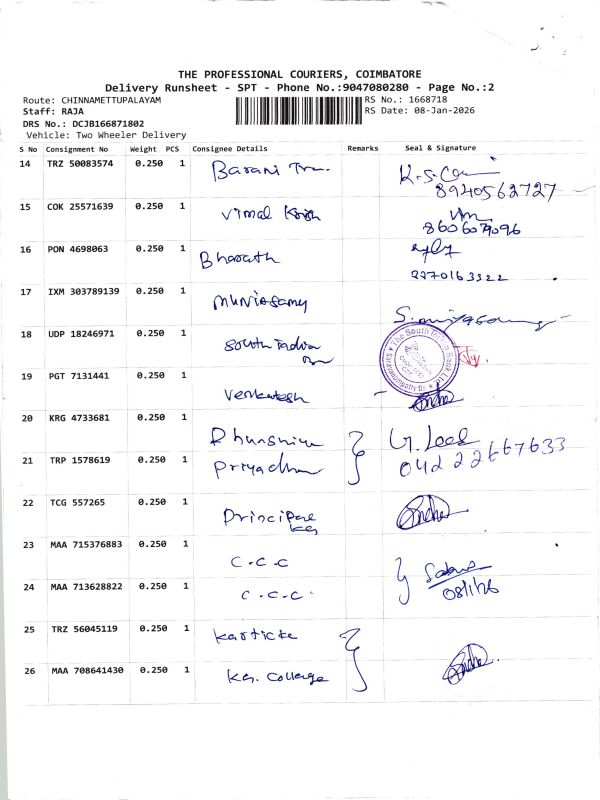 THE PROFESSIONAL COURIERS, COIMBATORE
Delivery Runsheet - SPT - Phone No.:9047080280 - Page No.:2
Route: CHINNAMETTUPALAYAM
Staff: RAJA
DRS No.: DCJB166871802
Vehicle: Two Wheeler Delivery
RS No.: 1668718
RS Date: 08-Jan-2026
S No Consignment No Weight PCS Consignee Details Remarks Seal & Signature
14 TRZ 50083574 0.250 1 Barani K.S.
8940562727
15 COK 25571639 0.250 1 Vimal
16 PON 4698063 0.250 1 Bharath
2270163322
17 IXM 303789139 0.250 1 muniasamy
18 UDP 18246971 0.250 1 South Indian
The South Indian Bank Ltd
19 PGT 7131441 0.250 1 Venkatesh
20 KRG 4733681 0.250 1
21 TRP 1578619 0.250 1 Priyadha
042 22667633
22 TCG 557265 0.250 1 Principal
KG
23 MAA 715376883 0.250 1 C.C.C
24 MAA 713628822 0.250 1 C.C.C.
08/1/26
25 TRZ 56045119 0.250 1 Karticke
26 MAA 708641430 0.250 1 KG. College